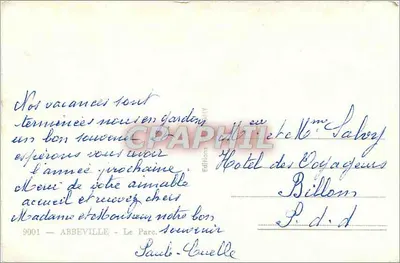 Nos vacances sont
terminées nous en gardons
un bon souvenir
espérons vous revoir
l'année prochaine
Merci de votre aimable
accueil et recevez chers
Madame et Monsieur notre bon
souvenir
9901 — ABBEVILLE - Le Parc
CPAPHIL
Mr et Mme Salvy
Hotel des Voyageurs
Billom
P.d.d